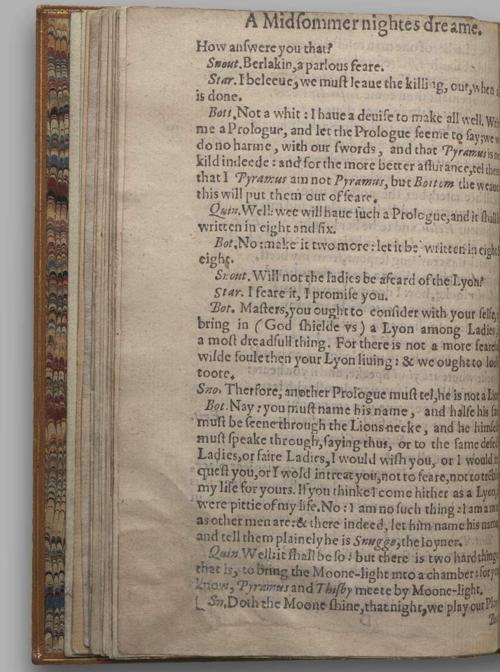 A Midsommer nightes dreame.
How answere you that?
Snout. Berlakin, a parlous feare.
Star. I beleeue, we must leaue the killing, out, when
is done.
Bott. Not a whit: I haue a deuise to make all well.
me a Prologue, and let the Prologue seeme to say; we
do no harme, with our swords, and that Pyramus is
kild indeede: and for the more better assurance, tel them
that I Pyramus am not Pyramus, but Bottom the
this will put them out of feare.
Quin. Well: wee will haue such a Prologue, and it shall
written in eight and six.
Bot. No: make it two more: let it be written in eight
eight.
Snout. Will not the ladies be afeard of the Lyon?
Star. I feare it, I promise you.
Bot. Masters, you ought to consider with your selfe,
bring in (God shielde vs) a Lyon among Ladies,
a most dreadfull thing. For there is not a more
wilde foule then your Lyon liuing: & we ought to
toote.
Sno. Therfore, another Prologue must tel, he is not a
Bot. Nay: you must name his name, and halfe his
must be seene through the Lions necke, and he
must speake through, saying thus, or to the same
Ladies, or faire Ladies, I would wish you, or I would
quest you, or I wold intreat you, not to feare, not to
my life for yours. If you thinke I come hither as a Lyon,
were pittie of my life. No: I am no such thing: I am a
as other men are: & there indeed, let him name his name,
and tell them plainely he is Snugge, the Ioyner.
Quin. Well: it shall be so: but there is two hard things,
that is, to bring the Moone-light into a chamber: for you
know, Pyramus and Thisby meete by Moone-light.
Sn. Doth the Moone shine, that night, we play our